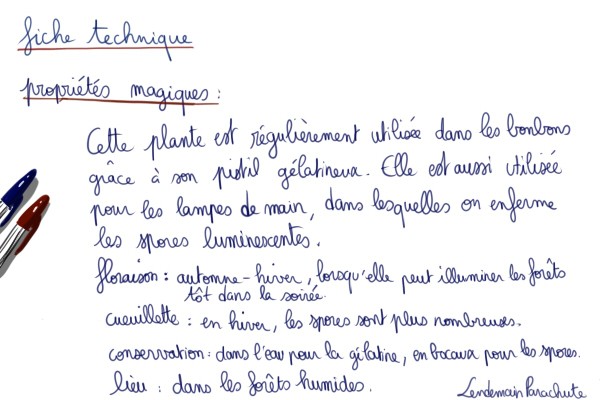 fiche technique
propriétés magiques :
Cette plante est régulièrement utilisée dans les bonbons
grâce à son pistil gélatineux. Elle est aussi utilisée
pour les lampes de main, dans lesquelles on enferme
les spores luminescentes.
floraison : automne - hiver, lorsqu'elle peut illuminer les forêts
tôt dans la soirée.
cueuillette : en hiver, les spores sont plus nombreuses.
conservation : dans l'eau pour la gélatine, en bocaux pour les spores.
lieu : dans les forêts humides.
LendemainParachute